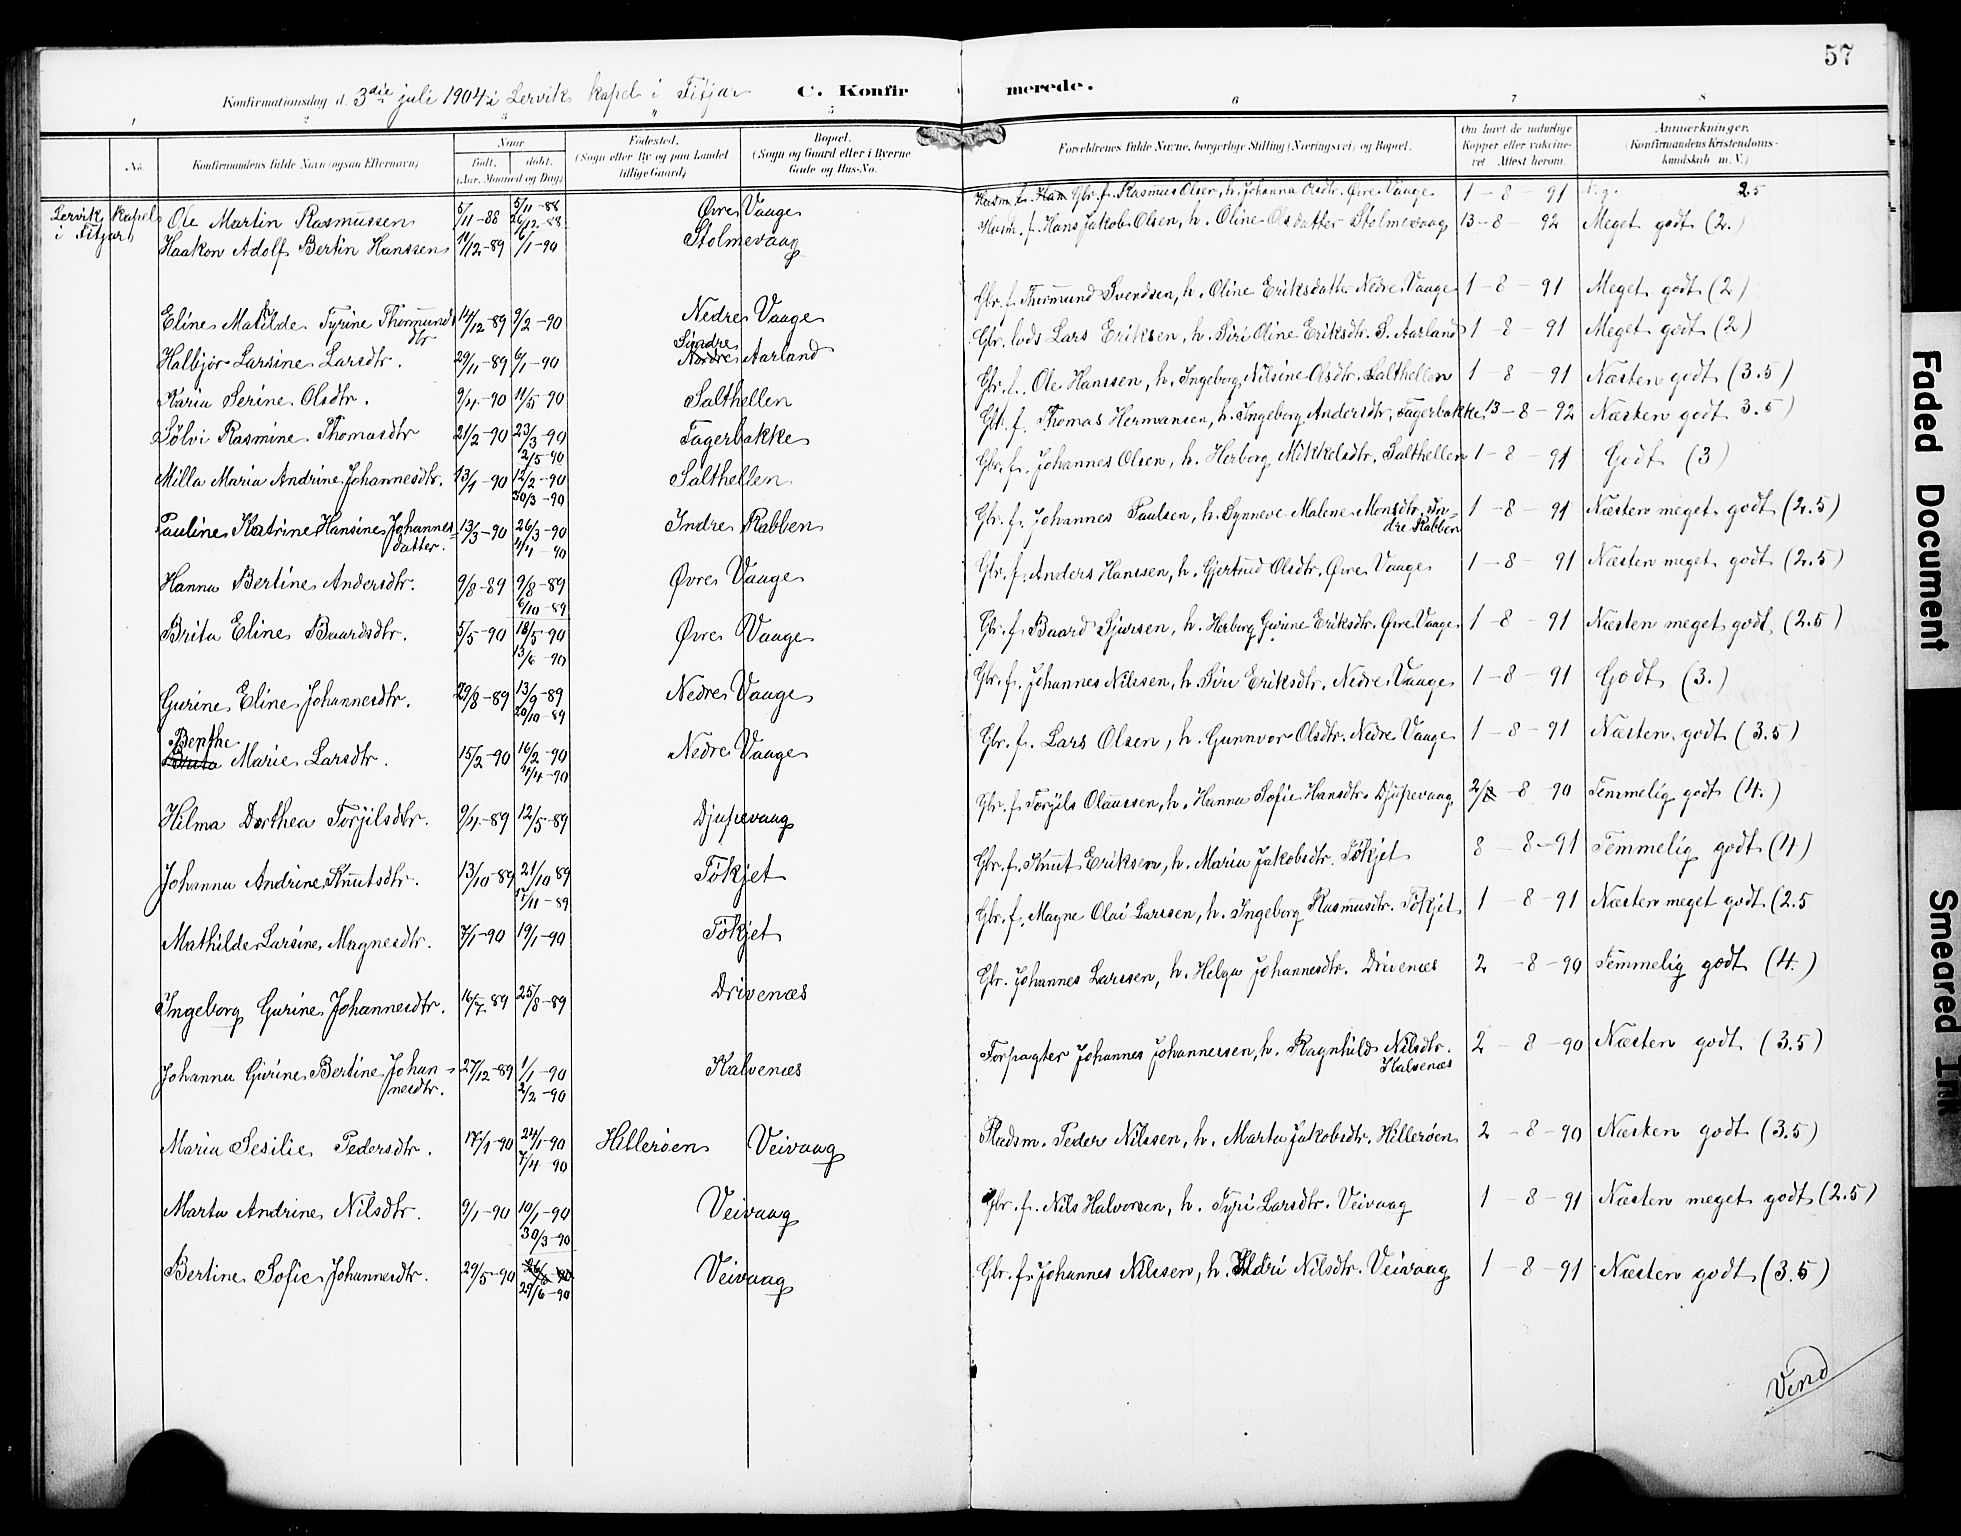 57
Konfirmationsdag d. 3die juli 1904 i Lervik kapel i Fitjar C. Konfirmerede.
1 2 3 5 6 7 8
No. Konfirmandens fulde Navn (ogsaa Efternavn) Naar født. døbt. (Aar, Maaned og Dag) Fødested. (Sogn eller By og paa Landet tillige Gaard) Bopæl. (Sogn og Gaard eller i Byerne Gade og Hus-No. Forældrenes fulde Navne, borgerlige Stilling (Næringsvei) og Bopæl. Om havt de naturlige Kopper eller vakcineret Attest herom. Anmerkninger. (Konfirmandens Kristendomskundskab m. V.)
Lervik kapel i Fitjar
Ole Martin Rasmussen 5/11-88 5/11-88 26/12-88 Øvre Vaage Gbr. f. Rasmus Olsen, h. Johanna Olsdtr. Øvre Vaage 1-8-91 2.5
Haakon Adolf Bertin Hanssen 19/12-89 6/1-90 Stolmevaag Husm. f. Hans Jakob Olsen, h. Oline Olsdatter Stolmevaag 13-8-92 Meget godt (2.)
Eline Matilde Tyrine Thormundsdtr 14/12-89 9/2-90 Nedre Vaage Gbr. f. Thormund Svendsen, h. Oline Eriksdatter Nedre Vaage 1-8-91 Meget godt (2)
Halbjør Larsine Larsdtr. 29/11-89 6/1-90 Søndre Nordre Aarland Gbr. lods Lars Eriksen, h. Siri Oline Eriksdtr. S. Aarland 1-8-91 Meget godt (2)
Karin Serine Olsdtr. 9/4-90 11/5-90 Salthellen Gbr. f. Ole Hanssen, h. Ingeborg Nilsine Olsdtr. Salthellen 1-8-91 Næsten godt (3.5)
Sølvi Rasmine Thomasdtr 21/2-90 23/3-90 12/5-90 Fagerbakke Gbr. f. Thomas Hermansen, h. Ingeborg Andersdtr, Fagerbakke 13-8-92 Næsten godt 3.5)
Milla Maria Andrine Johannesdtr. 13/1-90 12/2-90 30/3-90 Salthellen Gbr. f. Johannes Olsen, h. Herborg Mikkelsdtr, Salthellen 1-8-91 Godt (3)
Pauline Katrine Hansine Johannesdatter. 13/3-90 26/3-90 4/4-90 Indre Rabben Gbr. f. Johannes Paulsen, h. Synneve Malene Monsdtr, Indre Rabben 1-8-91 Næsten meget godt (2.5)
Hanna Bertine Andersdtr. 9/8-89 9/8-89 6/10-89 Øvre Vaage Gbr. f. Anders Hanssen, h. Gjertrud Olsdtr. Øvre Vaage 1-8-91 Næsten meget godt (2.5)
Brita Eline Baardsdtr. 5/5-90 18/5-90 13/6-90 Øvre Vaage Gbr. f. Baard Sjursen, h. Herborg Gurine Eriksdtr. Øvre Vaage 1-8-91 Næsten meget godt (2.5)
Gurine Eline Johannesdtr. 29/8-89 13/9-89 20/10-89 Nedre Vaage Gbr. f. Johannes Nilssen, h. Siri Eriksdtr. Nedre Vaage 1-8-91 Godt (3.)
Benthe Brita Marie Larsdtr. 15/2-90 16/2-90 4/4-90 Nedre Vaage Gbr. f. Lars Olsen, h. Gunnvor Olsdtr. Nedre Vaage 1-8-91 Næsten godt (3.5)
Hilma Dorthea Torjilsdtr. 9/4-89 12/5-89 Djupevaag Gbr. f. Torjils Olaussen, h. Hanna Sofie Hansdtr. Djupevaag 2/8-8-90 Temmelig godt (4.)
Johanna Andrine Knutsdtr. 13/10-89 21/10 89 17/11-89 Tökjet Gbr. f. Knut Eriksen, h. Maria Jakobsdtr. Tökjet 8 8-91 Temmelig godt (4)
Mathilde Larsine Magnesdtr. 7/1-90 19/1-90 Tökjet Gbr. f. Magne Olai Larssen, h. Ingeborg Rasmusdtr. Tökjet 1-8-91 Næsten meget godt (2.5
Ingeborg Gurine Johannesdtr. 16/7-89 25/8-89 Drivenæs Gbr. Johannes Larssen, h. Helga Johannesdtr. Drivenæs 2-8-90 Temmelig godt (4.)
Johanna Gurine Bertine Johannesdtr. 27/12-89 1/1-90 2/2-90 Kalvenæs Forpagter Johannes Johannessen, h. Ragnhild Nilsdtr. Kalvenæs 2-8-90 Næsten godt (3.5)
Maria Sesilie Pedersdtr. 17/1-90 24/1-90 7/4 90 Hillerøen Veivaag Pladsm. Peder Nilssen, h. Marta Jakobsdtr. Hillerøen 2-8-90 Næsten godt (3.5)
Marta Andrine Nilsdtr. 9/1-90 10/1-90 30/3-90 Veivaag Gbr. f. Nils Halvorsen, h. Tyri Larsdtr. Veivaag 1-8-91 Næsten meget godt (2.5)
Bertine Sofie Johannesdtr. 29/5-90 29/6-90 Veivaag Gbr. f. Johannes Nilssen, h. Nilsdtr. Veivaag 1-8-91 Næsten godt (3.5)
Vend
Faded Document
Smeared Ink